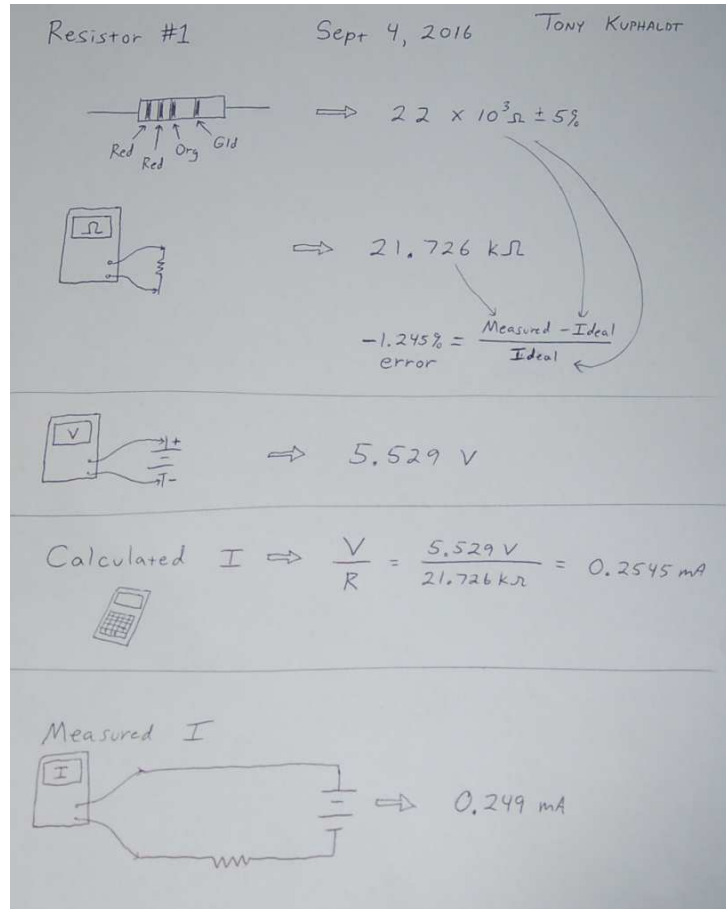 Resistor #1 Sept 4, 2016 Tony Kuphaldt
⇒ 22 × 10³ Ω ± 5%
Red Red Org Gld
Ω ⇒ 21.726 kΩ
-1.245% = Measured - Ideal
error Ideal
V + - ⇒ 5.529 V
Calculated I ⇒ V/R = 5.529 V/21.726 kΩ = 0.2545 mA
Measured I
I ⇒ 0.249 mA